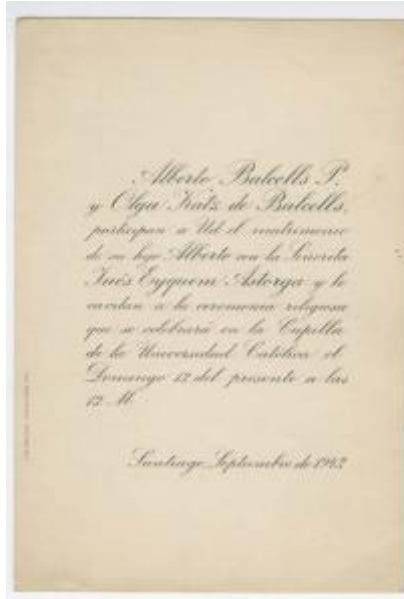 Alberto Balcells P.
y Olga Katz de Balcells,
participan a Ud el matrimonio
de su hijo Alberto con la Señorita
Inés Eyquem Astorga y le
invitan a la ceremonia religiosa
que se celebrará en la Capilla
de la Universidad Católica el
Domingo 12 del presente a las
12 M.
Santiago, Septiembre de 1942